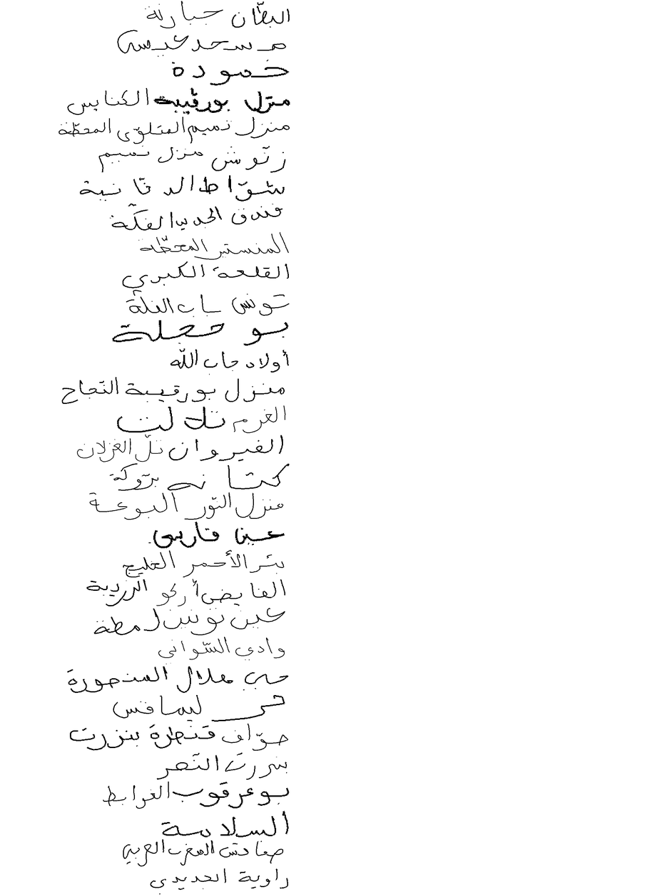 البطان جبارنة
مسجد عيسى
خمودة
منزل بورقيبة الكنايس
منزل تميم المتلوّي المحطّة
زنوش منزل تميم
شوّاط الدخانية
فندق الجديد الفكّة
المنستير المحطّة
القلعة الكبرى
تونس باب
بو حجلة
أولاد جاب الله
منزل بورقيبة النّجاح
القيروان تلّ الغزلان
كتانة بتروكة
منزل النّور البوعة
عين قارصي
بئر الأحمر الخليج
الفايض أركو الرديبة
عين تونس لمطة
وادي السّواني
حي هلال المنصورة
صوّاف قنطرة بنزرت
بنزرت النّصر
بوعرقوب الغرابط
السلامة
صفاقس المغرب العربي
زاوية الجديدي